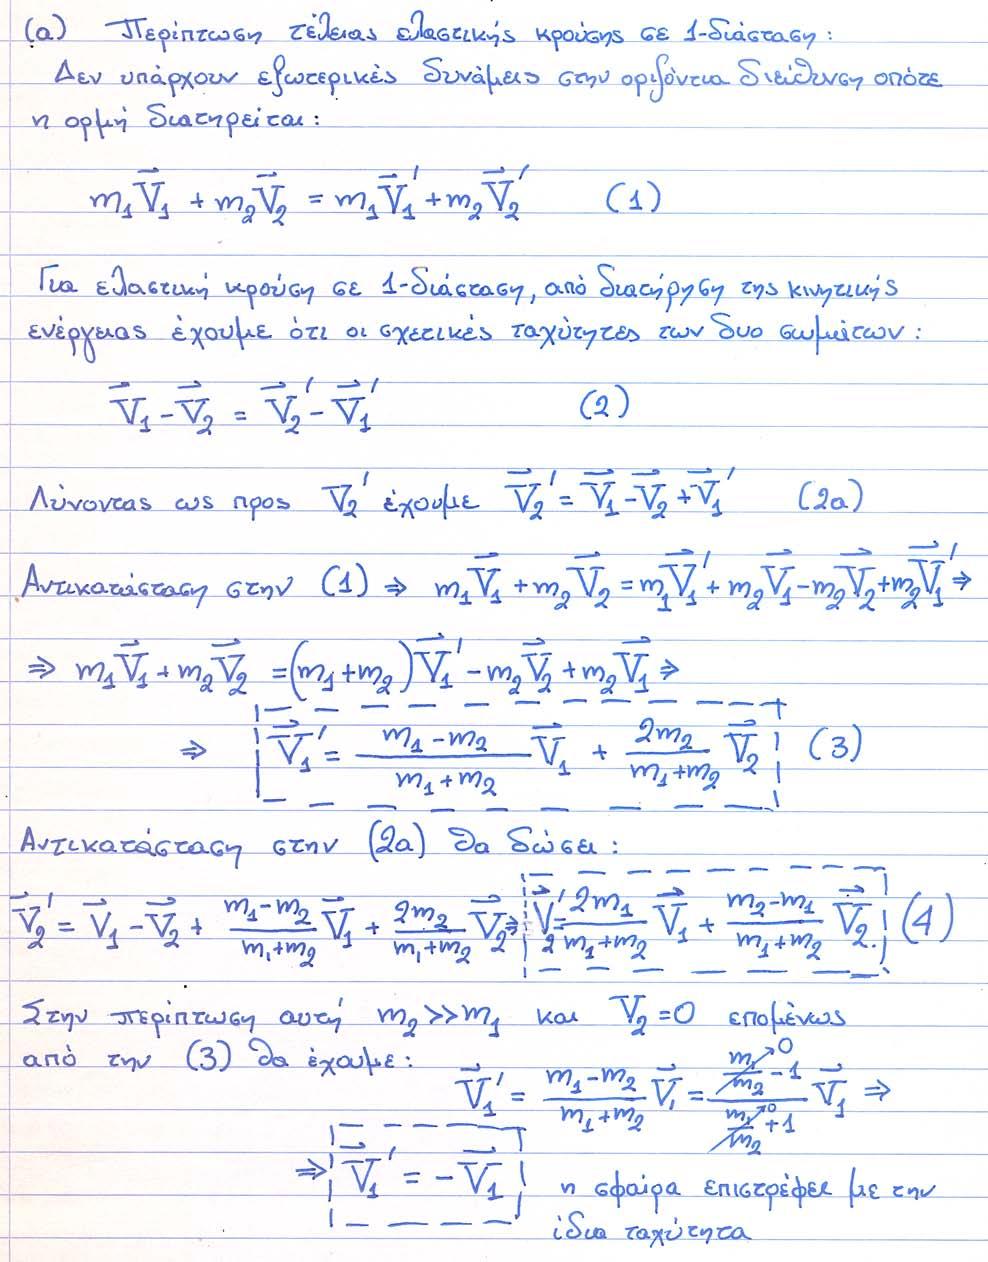 (α) Περίπτωση τέλειας ελαστικής κρούσης σε 1-διάσταση:
Δεν υπάρχουν εξωτερικές δυνάμεις στην οριζόντια διεύθυνση οπότε
η ορμή διατηρείται:
m₁V⃗₁ + m₂V⃗₂ = m₁V⃗₁′ + m₂V⃗₂′ (1)
Για ελαστική κρούση σε 1-διάσταση, από διατήρηση της κινητικής
ενέργειας έχουμε ότι οι σχετικές ταχύτητες των δυο σωμάτων:
V⃗₁ - V⃗₂ = V⃗₂′ - V⃗₁′ (2)
Λύνοντας ως προς V₂′ έχουμε V⃗₂′ = V⃗₁ - V⃗₂ + V⃗₁′ (2α)
Αντικατάσταση στην (1) ⇒ m₁V⃗₁ + m₂V⃗₂ = m₁V⃗₁′ + m₂V⃗₁ - m₂V⃗₂ + m₂V⃗₁′ ⇒
⇒ m₁V⃗₁ + m₂V⃗₂ = (m₁+m₂)V⃗₁′ - m₂V⃗₂ + m₂V⃗₁ ⇒
⇒ V⃗₁′ = (m₁-m₂)/(m₁+m₂) V⃗₁ + 2m₂/(m₁+m₂) V⃗₂ (3)
Αντικατάσταση στην (2α) θα δώσει:
V⃗₂′ = V⃗₁ - V⃗₂ + (m₁-m₂)/(m₁+m₂) V⃗₁ + 2m₂/(m₁+m₂) V⃗₂ ⇒ V⃗₂′ = 2m₁/(m₁+m₂) V⃗₁ + (m₂-m₁)/(m₁+m₂) V⃗₂. (4)
Στην περίπτωση αυτή m₂ >> m₁ και V⃗₂ = 0 επομένως
από την (3) θα έχουμε:
V⃗₁′ = (m₁-m₂)/(m₁+m₂) V⃗₁ = (m₁/m₂→0 - 1)/(m₁/m₂→0 + 1) V⃗₁ ⇒
⇒ V⃗₁′ = -V⃗₁ η σφαίρα επιστρέφει με την
ίδια ταχύτητα